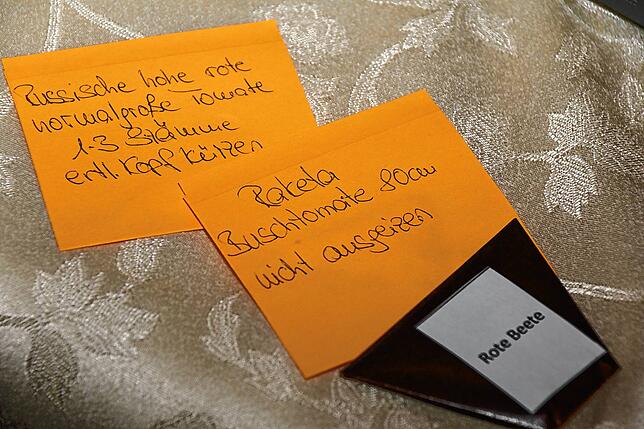 Russische hohe rote
normalgroße Tomate
1-3 Stämme
evtl. Kopf kürzen
Raketa
Buschtomate 80cm
nicht ausgeizen
Rote Beete